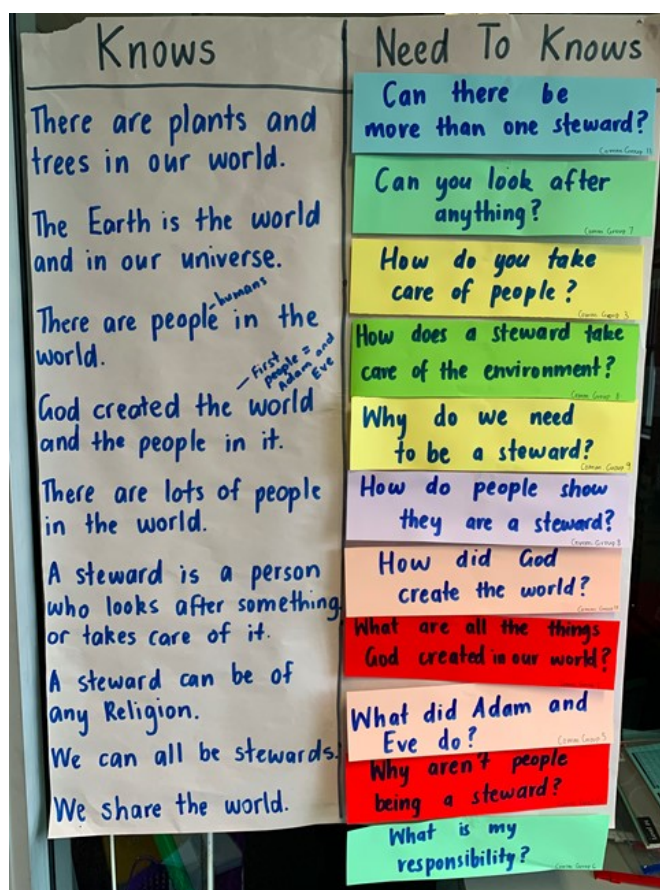 Knows
There are plants and
trees in our world.
The Earth is the world
and in our universe.
- humans
There are people in the
world.
- First
people =
Adam and
Eve
God created the world
and the people in it.
There are lots of people
in the world.
A steward is a person
who looks after something
or takes care of it.
A steward can be of
any Religion.
We can all be stewards.
We share the world.
Need To Knows
Can there be
more than one steward?
Comm Group 11
Can you look after
anything?
Comm Group 7
How do you take
care of people?
Comm Group 3
How does a steward take
care of the environment?
Comm Group 8
Why do we need
to be a steward?
Comm Group 9
How do people show
they are a steward?
Comm Group
How did God
create the world?
Comm Group
What are all the things
God created in our world?
What did Adam and
Eve do?
Comm Group 5
Why aren't people
being a steward?
What is my
responsibility?
Comm Group